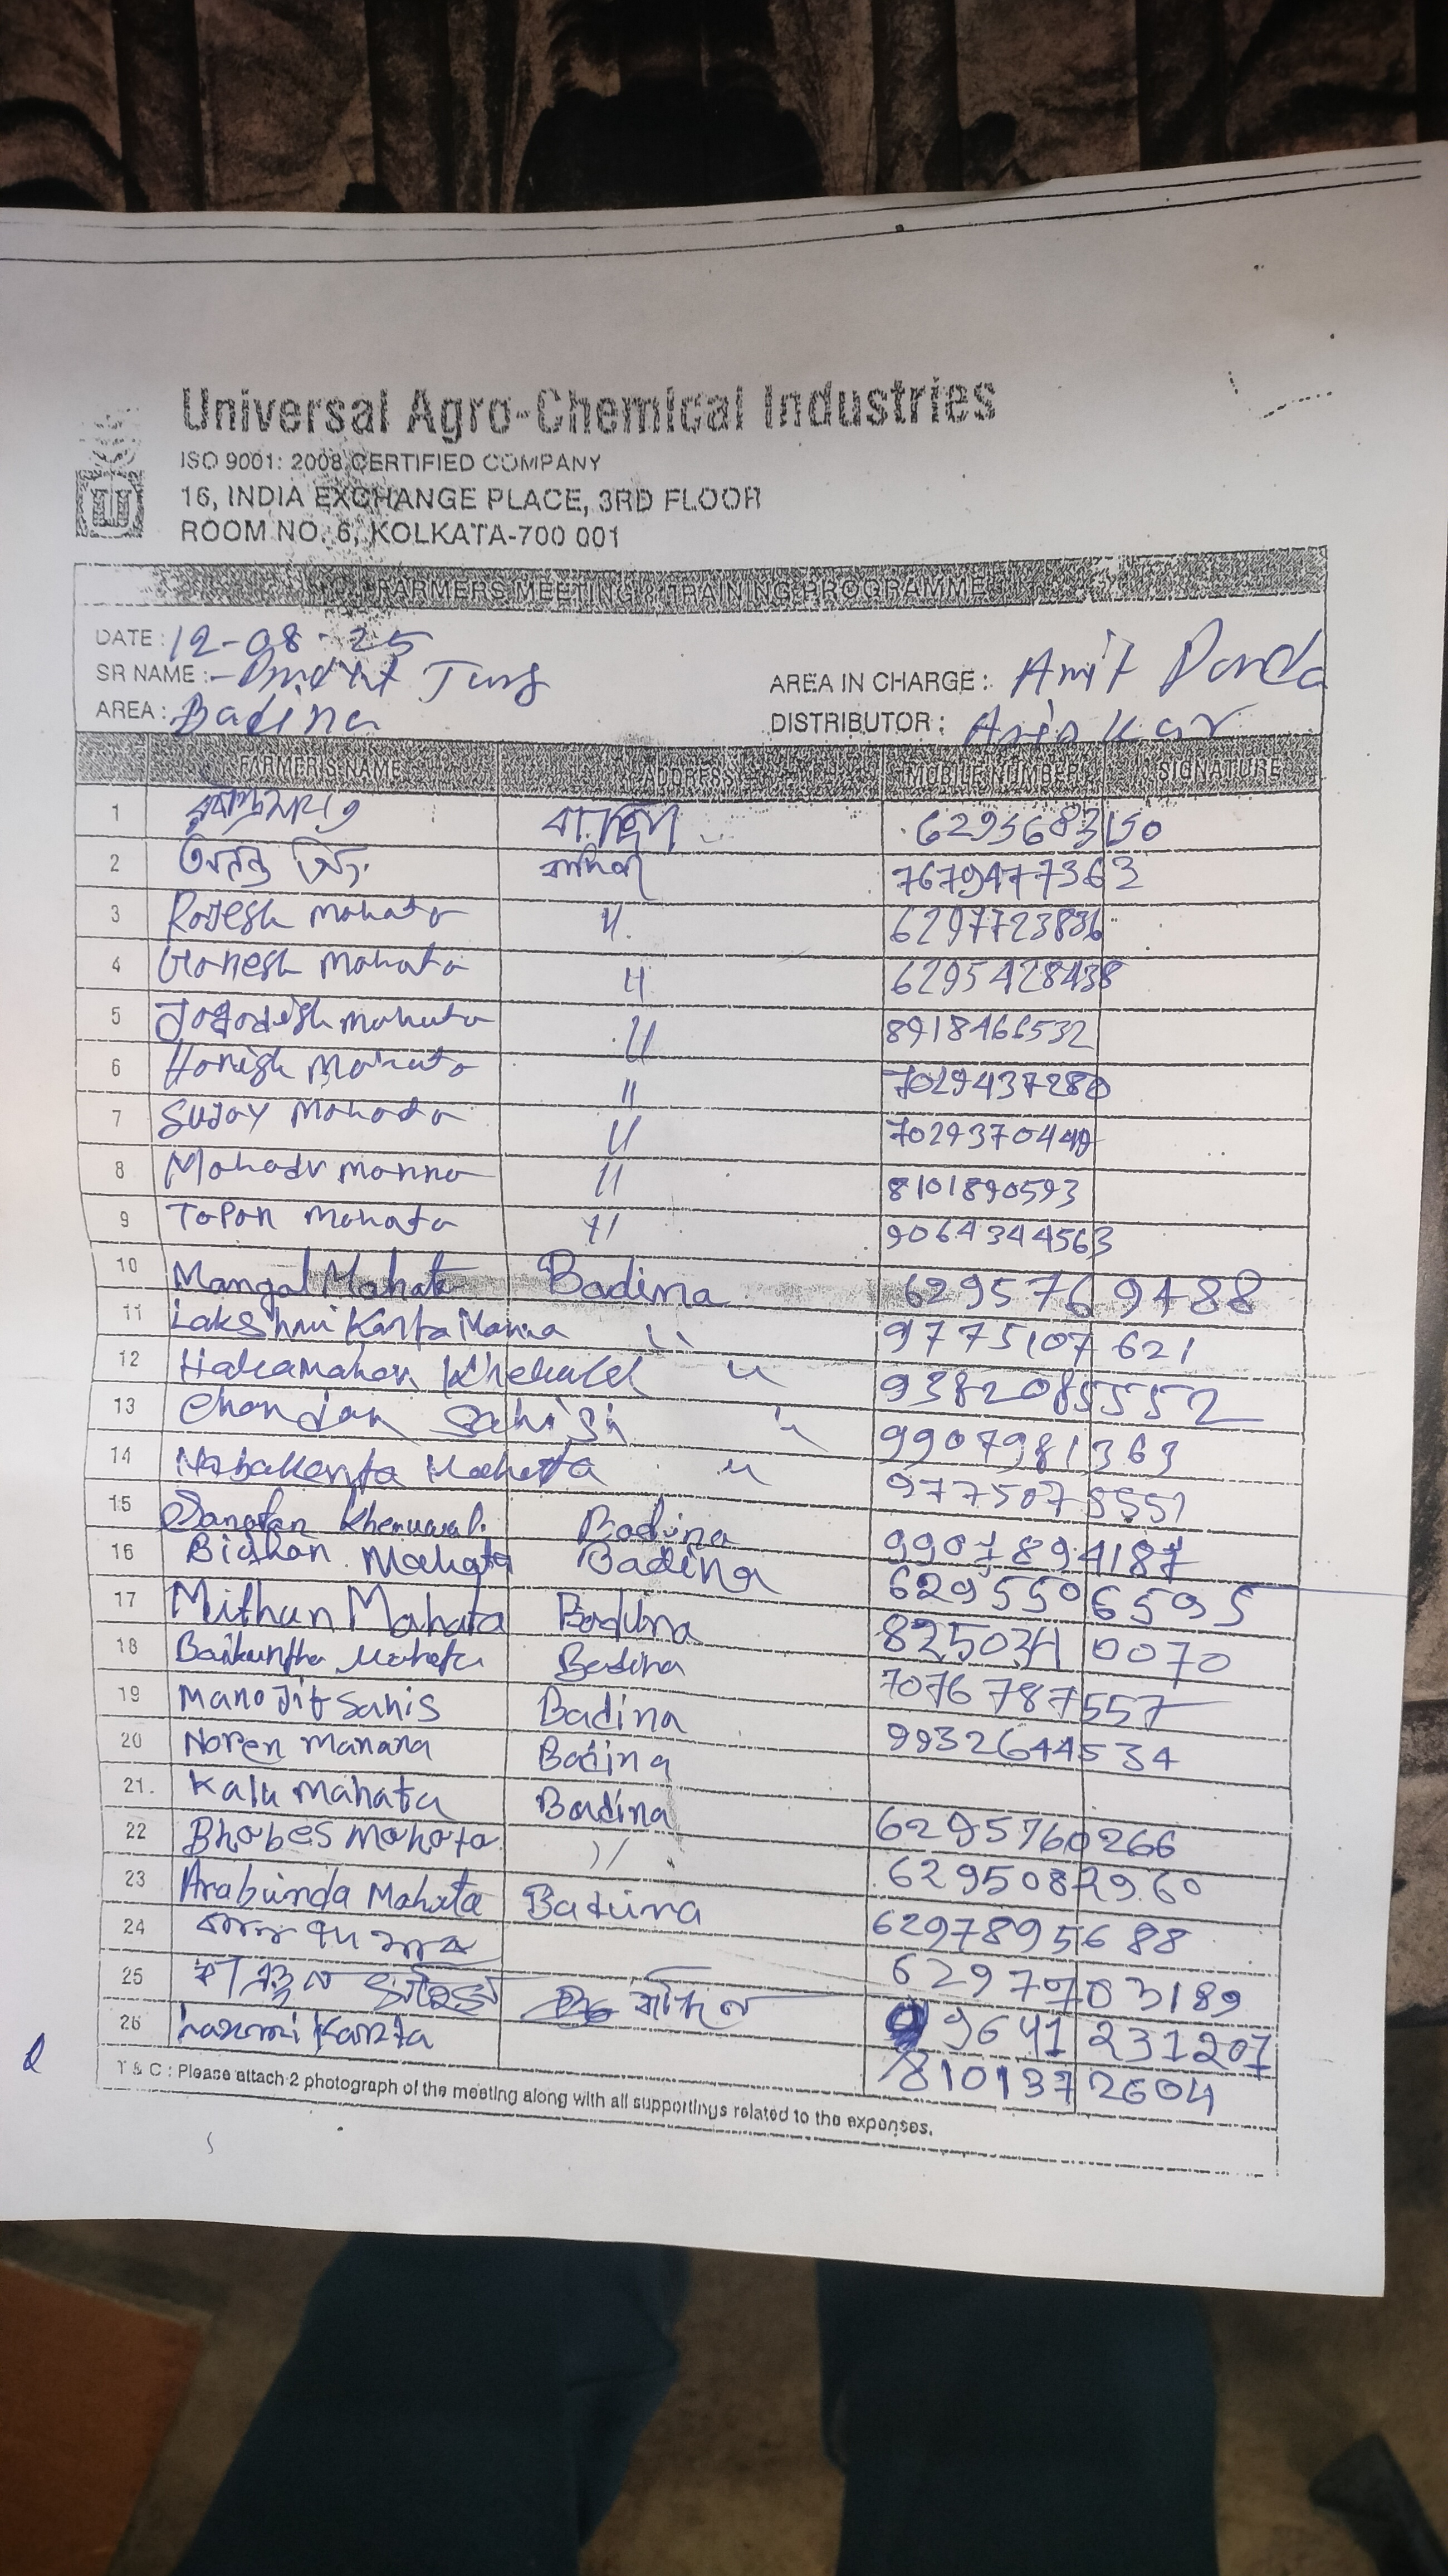 Universal Agro-Chemical Industries
ISO 9001: 2008 CERTIFIED COMPANY
16, INDIA EXCHANGE PLACE, 3RD FLOOR
ROOM NO. 6, KOLKATA-700 001
FARMERS MEETING & TRAINING PROGRAMME
DATE : 12-08-25
SR NAME :-
AREA IN CHARGE : Amit Panda
AREA : Badina
DISTRIBUTOR : Asis Kar
FARMER'S NAME ADDRESS MOBILE NUMBER SIGNATURE
1 6295683150
2 অনন্ত 7679477363
3 Rajesh Mahata 11 6297723836
4 Ganesh Mahata 11 6295428438
5 Jogodish Mahata 11 8918466532
6 Horish Mahato 11 7029437280
7 Sujoy Mahada 11 7029370449
8 Mahadv Manna 11 8101890593
9 Tapon Mahata 11 9064344563
10 Mangal Mahata Badina 6295769488
11 Lakshmi Kanta Manna 11 9775107621
12 11 9382085552
13 Chandan Sahish 11 9907981363
14 Nabakanta Mahata 11 9775075551
15 Badina 9907894187
16 Bidhan Mahata Badina 6295506595
17 Mithun Mahata Badina 8250340070
18 Baikuntha Mahata Badina 7076787557
19 Manojit Sahis Badina 9932644534
20 Noren Manana Badina
21. Kalu Mahata Badina 6295760266
22 Bhobes Mahata 11 6295082960
23 Arabinda Mahata Badina 6297895688
24 6297703189
25 9641231207
26 Laxmi Kanta 8101372604
T & C : Please attach 2 photograph of the meeting along with all supportings related to the expenses.